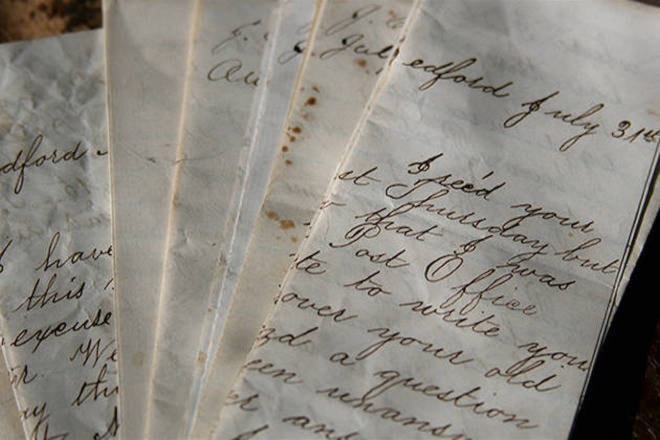 dford
I have
this
excuse
We
my th
Au
Jul
edford July 31st
I rec'd your
st Thursday but
that I was
Post Office
te to write you
over your old
nd a question
een unansw
er an